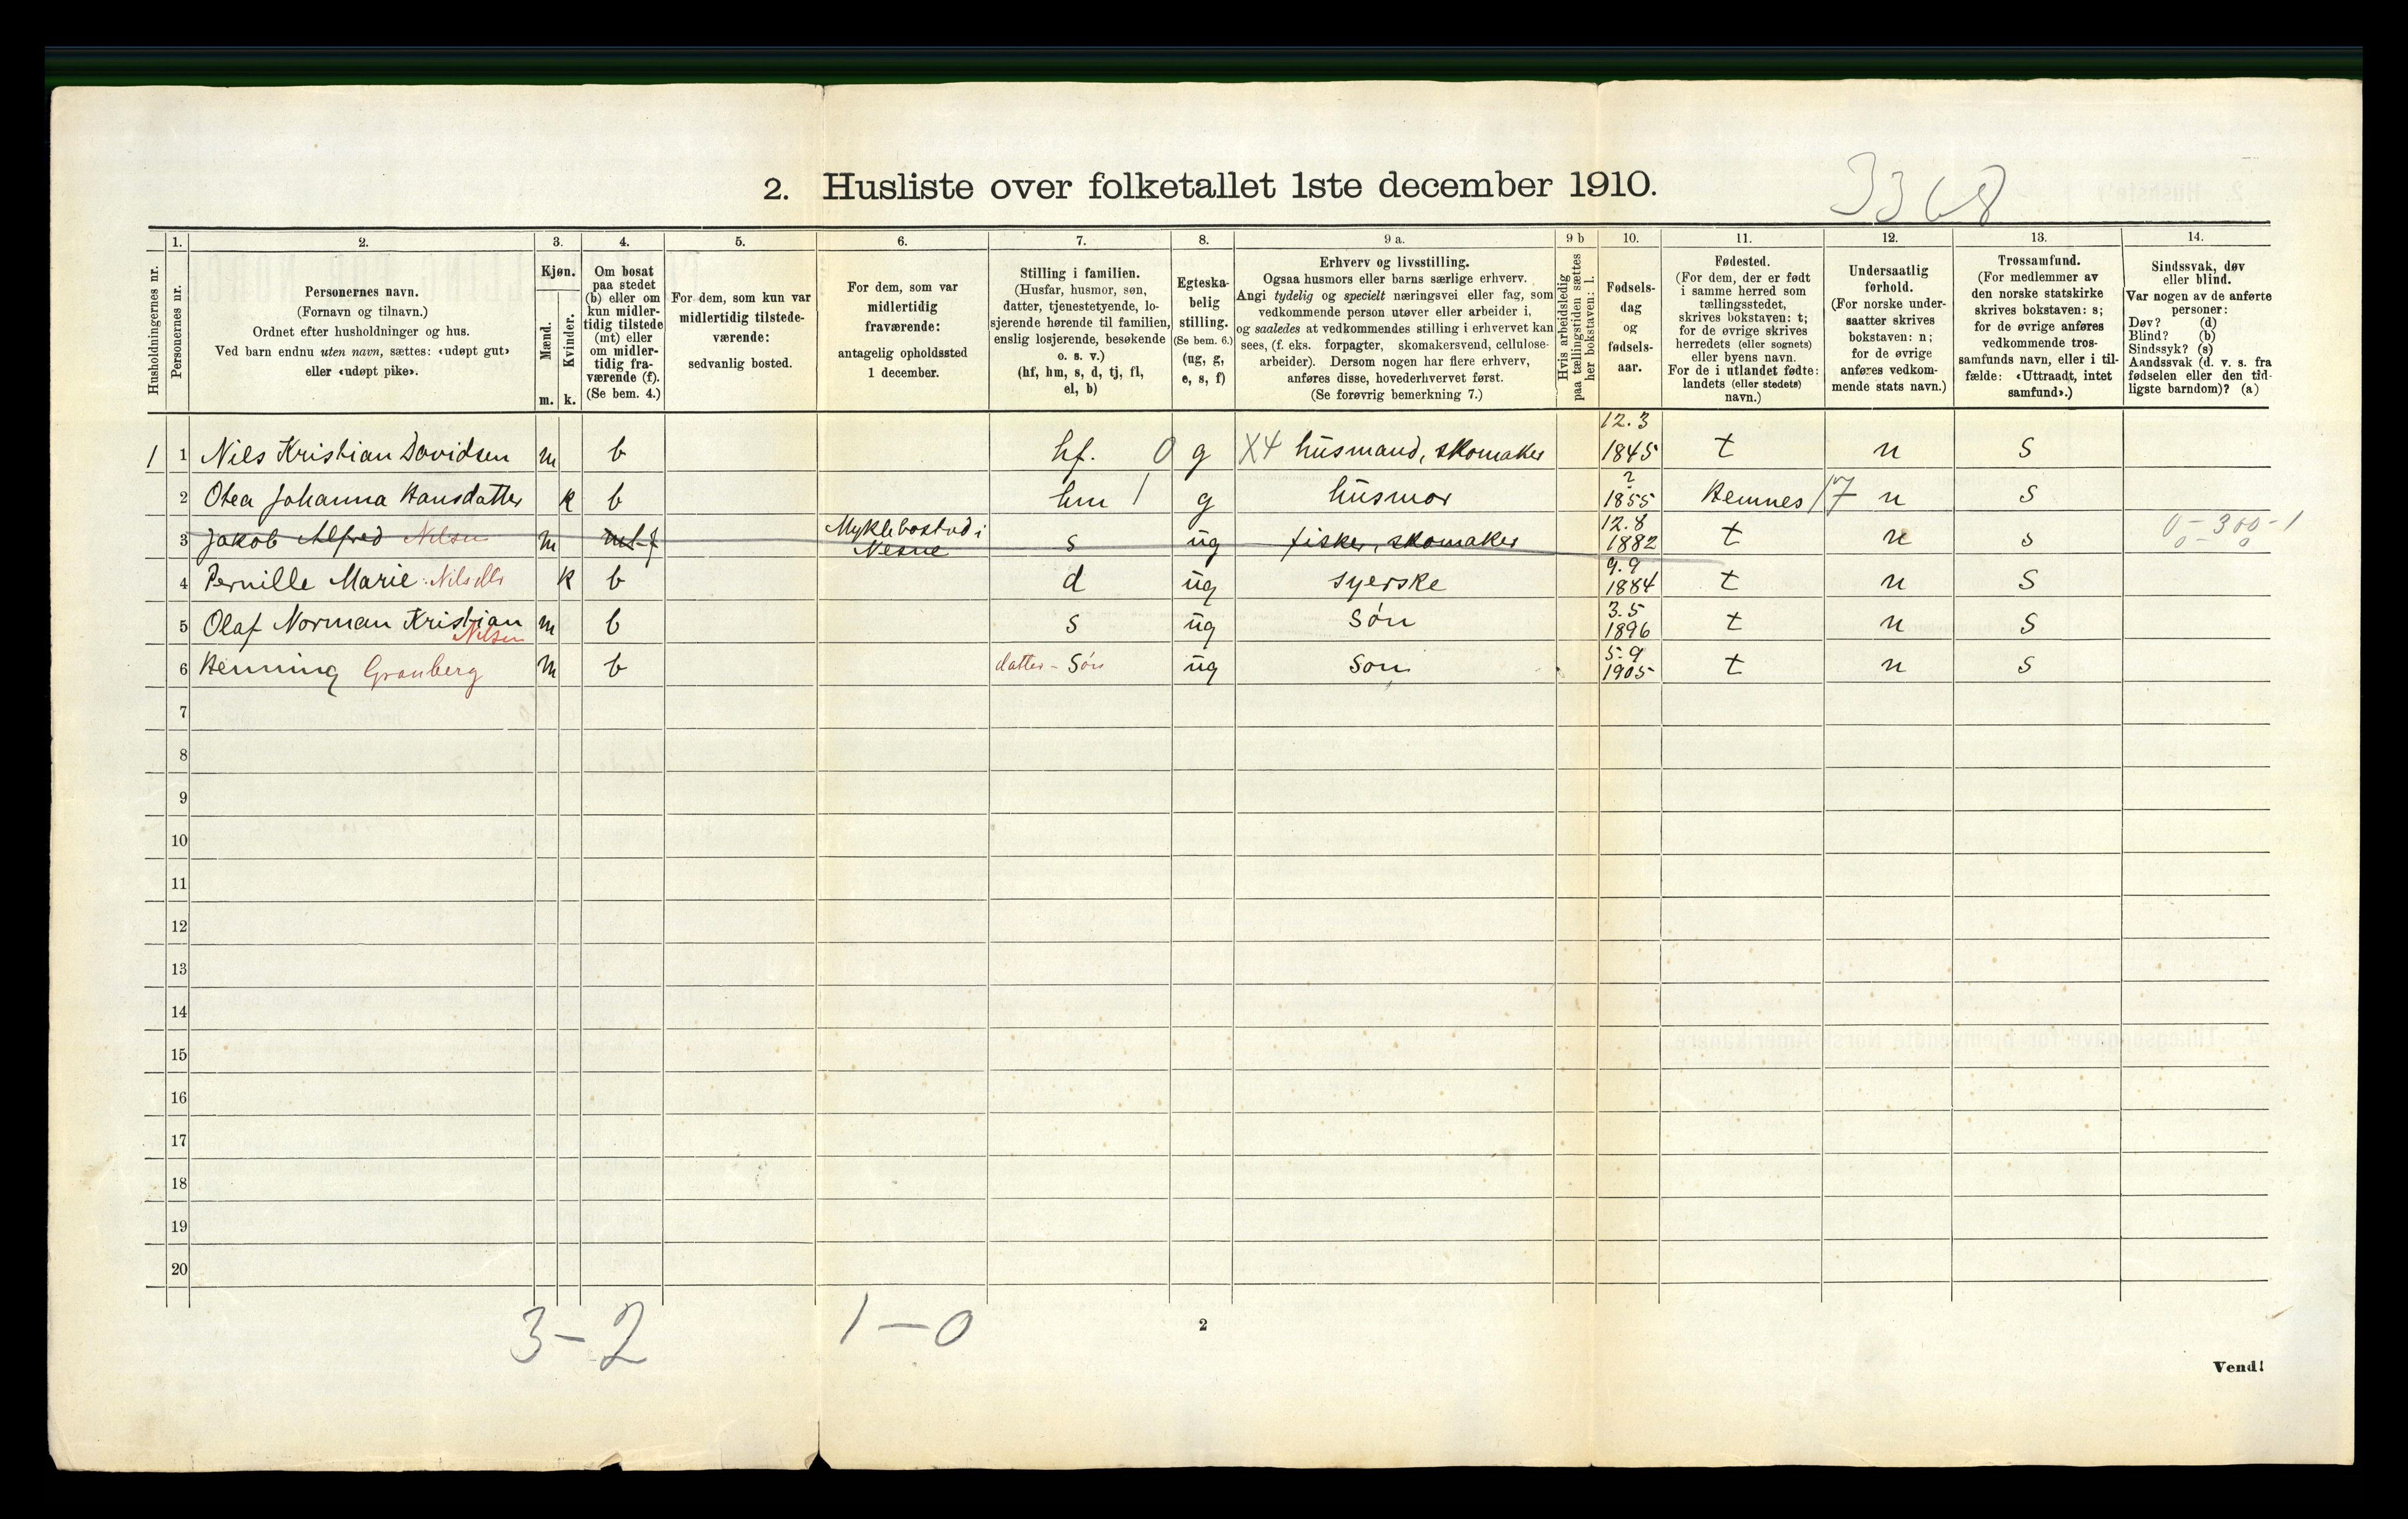 2. Husliste over folketallet 1ste december 1910.
3368
Husholdningernes nr.
1.
Personernes nr.
2.
Personernes navn.
(Fornavn og tilnavn.)
Ordnet efter husholdninger og hus.
Ved barn endnu uten navn, sættes: «udøpt gut»
eller «udøpt pike».
3.
Kjøn.
Mænd.
Kvinder.
m. k.
4.
Om bosat
paa stedet
(b) eller om
kun midler-
tidig tilstede
(mt) eller
om midler-
tidig fra-
værende (f).
(Se bem. 4.)
5.
For dem, som kun var
midlertidig tilstede-
værende:
sedvanlig bosted.
6.
For dem, som var
midlertidig
fraværende:
antagelig opholdssted
1 december.
7.
Stilling i familien.
(Husfar, husmor, søn,
datter, tjenestetyende, lo-
sjerende hørende til familien,
enslig losjerende, besøkende
o. s. v.)
(hf, hm, s, d, tj, fl,
el, b)
8.
Egteska-
belig
stilling.
(Se bem. 6.)
(ug, g,
e, s, f)
9 a.
Erhverv og livsstilling.
Ogsaa husmors eller barns særlige erhverv.
Angi tydelig og specielt næringsvei eller fag, som
vedkommende person utøver eller arbeider i,
og saaledes at vedkommendes stilling i erhvervet kan
sees, (f. eks. forpagter, skomakersvend, cellulose-
arbeider). Dersom nogen har flere erhverv,
anføres disse, hovederhvervet først.
(Se forøvrig bemerkning 7.)
9 b
Hvis arbeidsledig
paa tællingstiden sættes
her bokstaven: l.
10.
Fødsels-
dag
og
fødsels-
aar.
11.
Fødested.
(For dem, der er født
i samme herred som
tællingsstedet,
skrives bokstaven: t;
for de øvrige skrives
herredets (eller sognets)
eller byens navn.
For de i utlandet fødte:
landets (eller stedets)
navn.)
12.
Undersaatlig
forhold.
(For norske under-
saatter skrives
bokstaven: n;
for de øvrige
anføres vedkom-
mende stats navn.)
13.
Trossamfund.
(For medlemmer av
den norske statskirke
skrives bokstaven: s;
for de øvrige anføres
vedkommende tros-
samfunds navn, eller i til-
fælde: «Uttraadt, intet
samfund».)
14.
Sindssvak, døv
eller blind.
Var nogen av de anførte
personer:
Døv? (d)
Blind? (b)
Sindssyk? (s)
Aandssvak (d. v. s. fra
fødselen eller den tid-
ligste barndom)? (a)
1 1 Nils Kristian Davidsen m b hf. 0 g X4 husmand, skomaker 12.3 1845 t n s
2 Otea Johanna Hansdatter k b hm 1 g husmor ? 1855 Hemnes 17 n s
3 Jakob Alfred Nilsen m mt f Myklebostad i Nesne s ug fisker, skomaker 12.8 1882 t n s 0-300-1
0-0
4 Pernille Marie Nilsdtr k b d ug syerske 9.9 1884 t n s
5 Olaf Norman Kristian Nilsen m b s ug Søn 3.5 1896 t n s
6 Henning Granberg m b datter-Søn ug Son 5.9 1905 t n s
7
8
9
10
11
12
13
14
15
16
17
18
19
20
3-2 1-0
2
Vend!